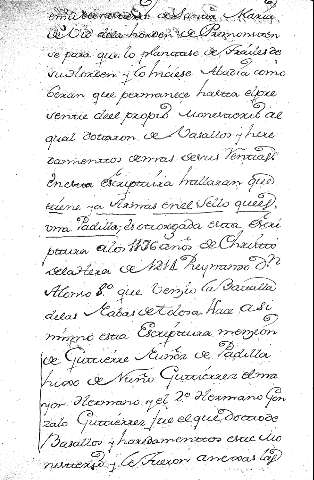 el monasterio de Santa Maria
de Vid dela horden de Premonsten
se para que lo plantase de frailes de
su Horden y lo hiciese Abadia como
veran que permanece hasta el pre
sente de el propio Monesterio al
qual dotaron de Vasallos y here
damentos demas de sus Rentas
En esta Escriptura hallaran que
tiene ya Armas en el Sello que es
una Padilla, Es otorgada esta Escri
ptura alos 1176 años de Christo
dela Hera de 1214 Reynando Dn
Alonso 8º que Venzio la Batalla
delas Nabas de tolosa Hace asi
mismo esta Escriptura menzion
de Gutierre Muñoz de Padilla
huxo de Nuño Gutierrez el ma
yor Hermano, y el 2º Hermano Gon
zalo Gutierrez fue el que doto de
Basallos y heredamentos este Mo
nesterio y le fueron anexas